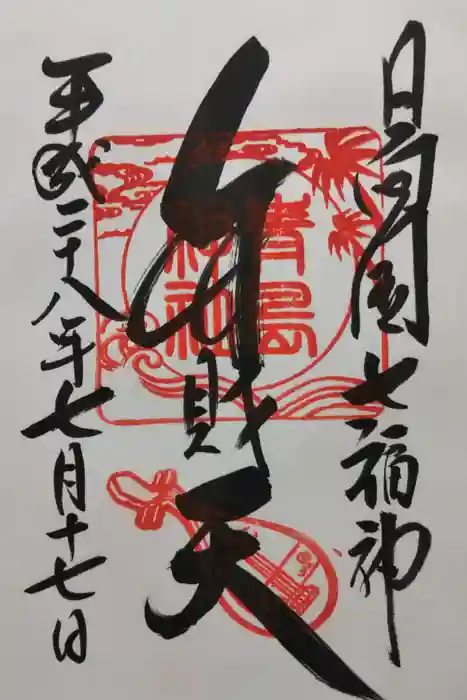 日向国七福神
弁財天
青島
神社
平成二十八年七月十七日